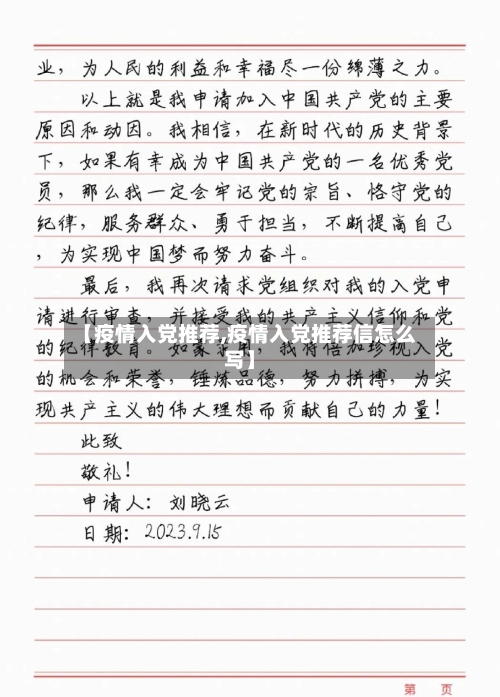 业，为人民的利益和幸福尽一份绵薄之力。
以上就是我申请加入中国共产党的主要
原因和动因。我相信，在新时代的历史背景
下，如果有幸成为中国共产党的一名优秀党
员，那么我一定会牢记党的宗旨、恪守党的
纪律，服务群众、勇于担当，不断提高自己
，为实现中国梦而努力奋斗。
最后，我再次请求党组织对我的入党申
请进行审查，并接受我的共产主义信仰和党
【疫情入党推荐,疫情入党推荐信怎么
写】
的纪律教育。如蒙 我将倍加珍视入党
的机会和荣誉，锤炼品德，努力拼搏，为实
现共产主义的伟大理想而贡献自己的力量！
此致
敬礼！
申请人：刘晓云
日期：2023.9.15
第 页